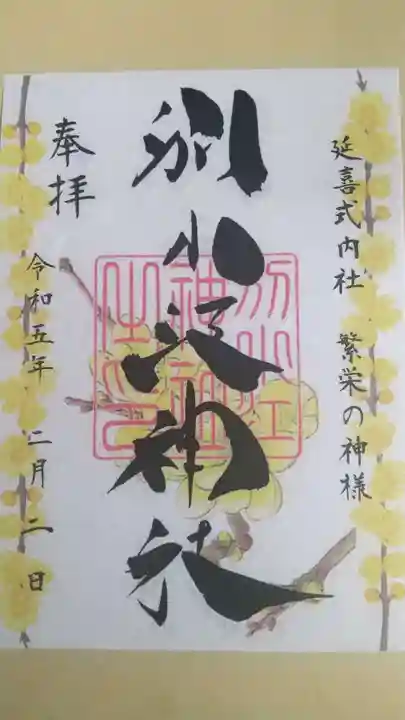 延喜式内社 繁栄の神様
別小江神社
別小江
神社
之印
奉拝
令和五年 二月二日